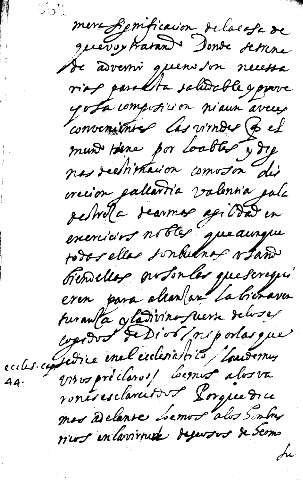 mera significacion de la cosa de
que voy tratando Donde se tiene
de advertir que no son necessa
rias para esta saludable y prove
chosa composicion ni aun a veces
convenientes las virtudes q el
mundo tiene por loables y dig
nas de estimacion como son dis
crecion gallardia valentia gala
destreza de armas agilidad en
exercicios nobles que aunque
todas ellas son buenas usando
bien dellas no son las que se requi
eren para alcanzar la bienaven
turanza y la divina suerte de los es
cogidos de Dios / ni por las que
se dice en el ecclesiastico / Loademus
viros preclaros / loemos a los va
rones esclarecidos Porque dice
mas adelante loemos a los hombres
ricos en la virtud deseosos de hermo
su
eccles. cap.
44.